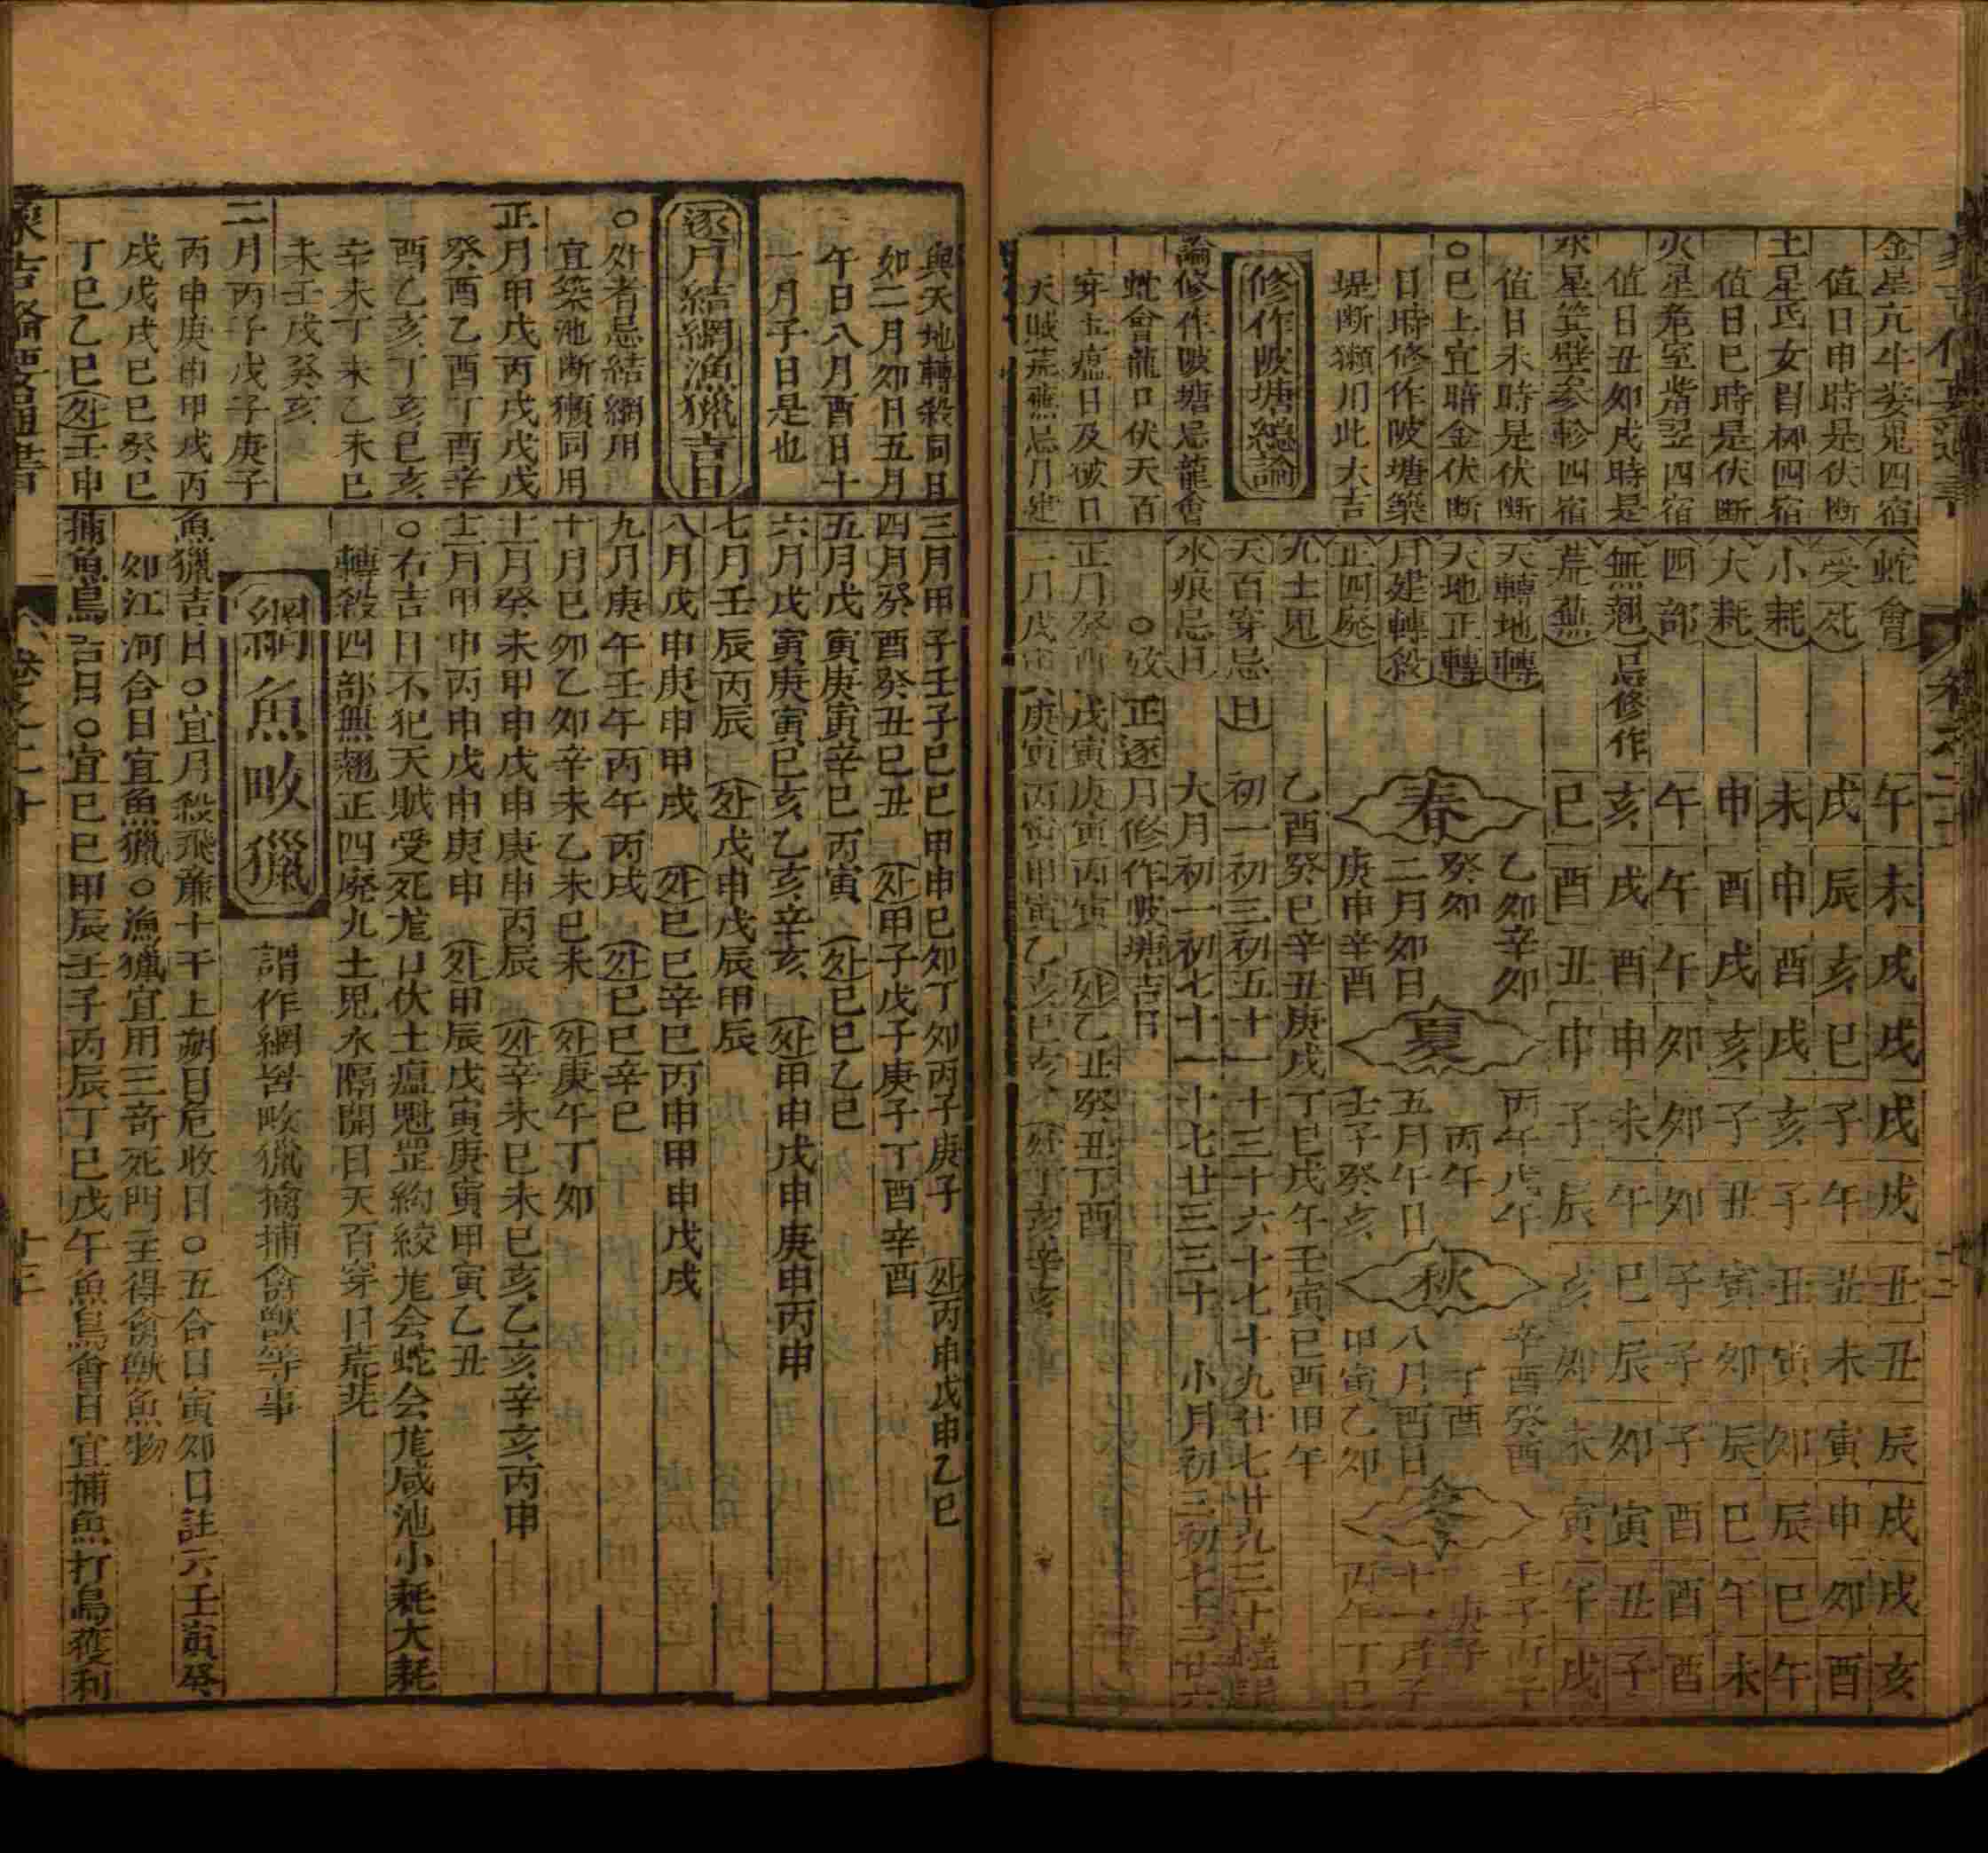 金星亢牛婁鬼四宿
值日申時是伏断
土星氐女胃柳四宿
值日巳時是伏断
火星危室觜翌四宿
值日丑夘戌時是
水星箕壁參軫四宿
值日未時是伏断
○巳上宜暗金伏断
日時修作陂塘築
堤断獺用此大吉
修作陂塘總論
論修作陂塘忌龍會
蛇會龍口伏天百
穿土瘟日及破日
天賊荒蕪忌月建
蛇會 午未戌戌戌戌丑丑辰戌戌亥
受死 戌辰亥巳子午丑未寅申夘酉
小耗 未申酉戌亥子丑寅夘辰巳午
大耗 申酉戌亥子丑寅夘辰巳午未
四部 午午午夘夘夘子子子酉酉酉
無翹忌修作 亥戌酉申未午巳辰夘寅丑子
荒蕪 巳酉丑申子辰亥夘未寅午戌
天轉地轉 乙夘辛夘 丙午戊午 辛酉癸酉 壬子丙子
天地正轉 癸夘 丙午 丁酉 庚子
月建轉殺 春 二月夘日 夏 五月午日 秋 八月酉日 冬 十一月子
正四廃 庚申辛酉 壬子癸亥 甲寅乙卯 丙午丁巳
九土鬼 乙酉癸巳辛丑庚戌丁巳戊午壬寅巳酉旧午
天百穿忌日 初一初三初五十一十三十六十七十九廿七廿九三十
水痕忌日 大月初一初七十一十七廿三三十 小月初三初七十二廿六
正逐月修作陂塘吉日
正月癸酉 戊寅庚寅丙寅 处乙丑癸丑丁酉
二月戊寅 庚寅丙寅甲寅乙亥巳亥 处丁亥辛亥
與天地轉殺同日
如二月夘日五月
午日八月酉日十
一月子日是也
逐月結網漁獵吉日
○处者忌結網用
宜築池断獺同用
正月甲戌丙戌戊戌
癸酉乙酉丁酉辛
酉乙亥丁亥巳亥
辛未丁未乙未巳
未壬戌癸亥
二月丙子戊子庚子
丙申庚申甲戌丙
戌戊戌巳巳癸巳
丁巳乙巳处壬申
三月甲子壬子巳巳甲申巳夘丁夘丙子庚子 处丙申戊申乙巳
四月癸酉癸丑巳丑 处甲子戊子庚子丁酉辛酉
五月戊寅庚寅辛巳丙寅 处巳巳乙巳
六月戊寅庚寅巳亥乙亥辛亥 处甲申戊申庚申丙申
七月壬辰丙辰 处戊申戊辰甲辰
八月戊申庚申甲戌 处巳巳辛巳丙申甲申戊戌
九月庚午壬午丙午丙戌 处巳巳辛巳
十月巳夘乙夘辛未乙未巳未 处庚午丁夘
十一月癸未甲申戊申庚申丙辰 处辛未巳未巳亥乙亥辛亥丙申
十二月甲申丙申戊申庚申 处甲辰戊寅庚寅甲寅乙丑
○右吉日不犯天賊受死尨口伏土瘟魁罡絇絞尨会蛇会尨咸池小耗大耗
轉殺四部無翹正四廃九土鬼水隔開日天百穿日荒芜
網魚畋獵 謂作網罟畋獵擒捕禽獸等事
魚獵吉日○宜月殺飛亷十干上朔日危收日○五合日寅夘日註六壬寅癸
夘江河合日宜魚獵○漁獵宜用三奇死門主得禽獸魚物
捕魚鳥吉日○宜巳巳甲辰壬子丙辰丁巳戊午魚鳥會日宜捕魚打鳥獲利